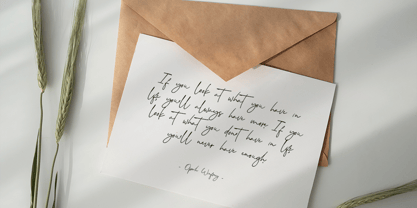 If you look at what you have in
life you'll always have more. If you
look at what you don't have in life
you'll never have enough
- Oprah Winfrey -